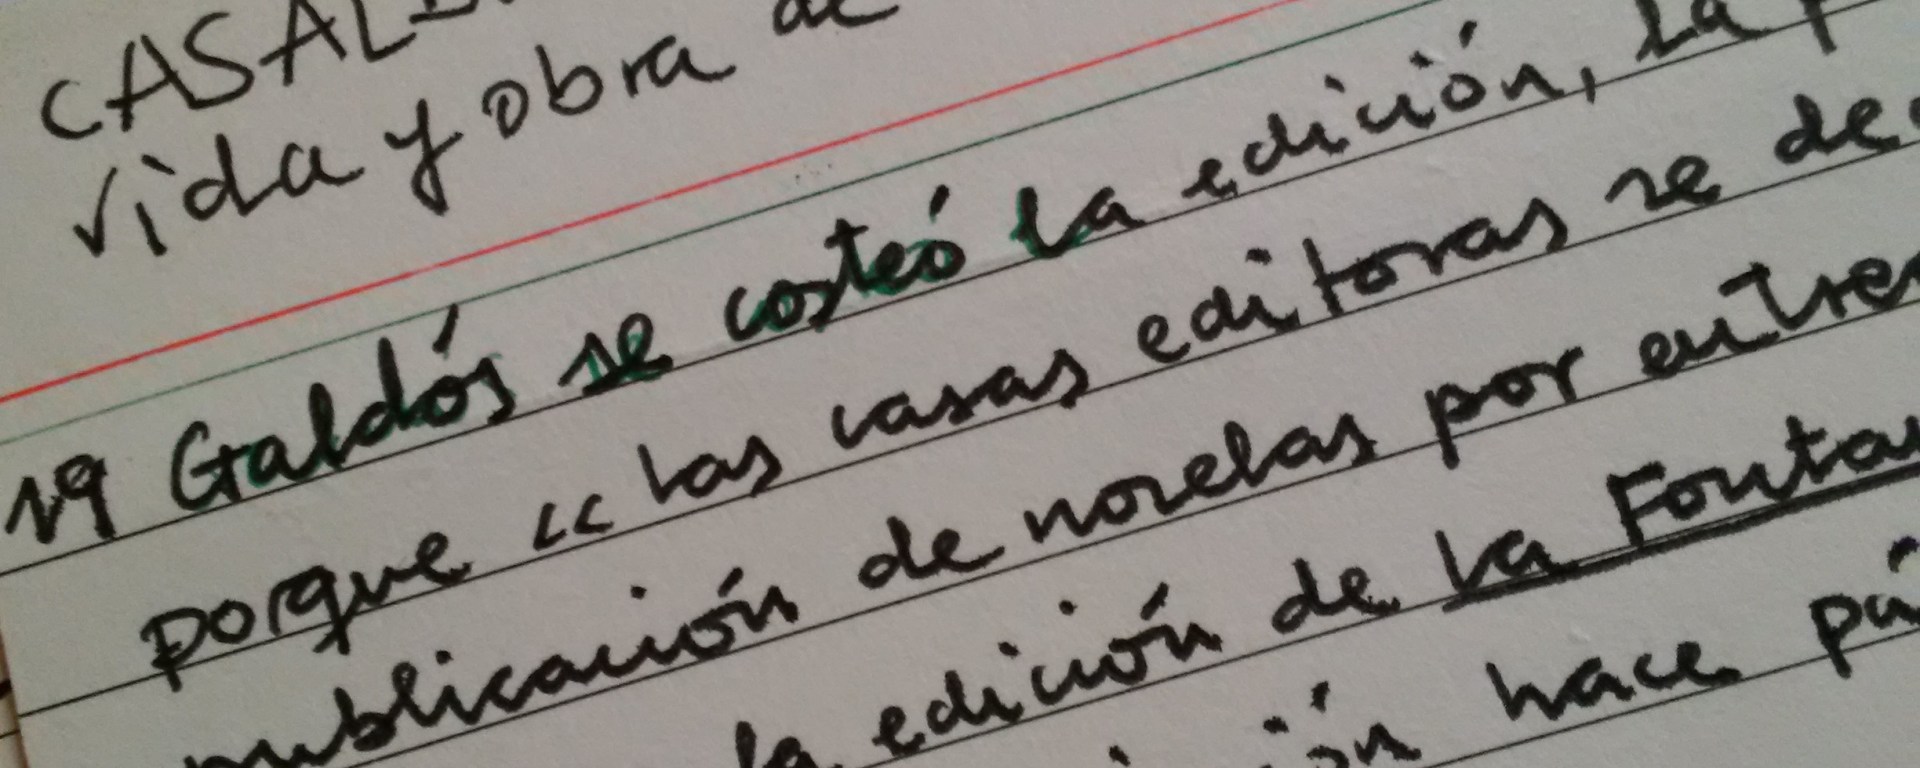 CASAL
vida y obra de
19 Galdós se costeó la edición, la
porque "las casas editoras se
publicación de novelas por
la edición de La
hace